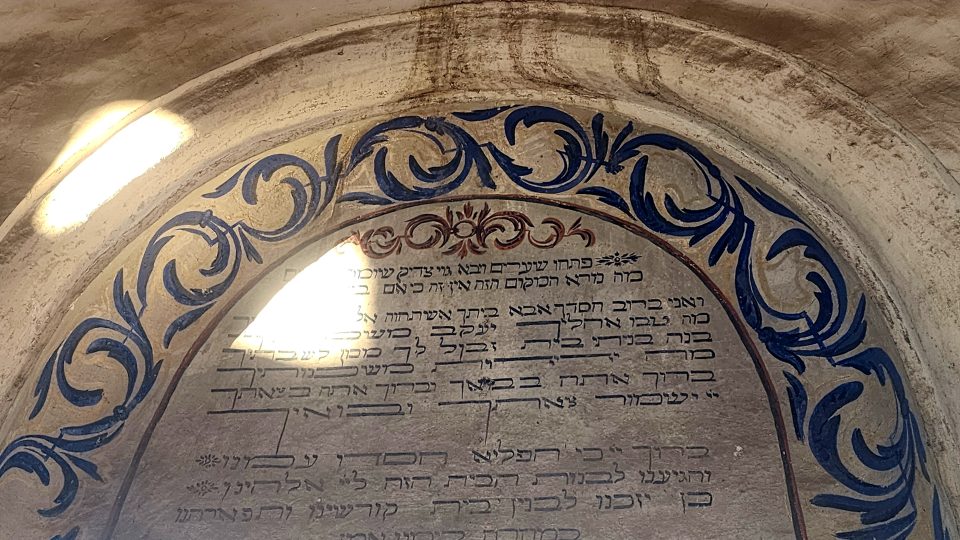 פתחו שערים ובא גוי צדיק שומר
מה נורא המקום הזה אין זה כי אם
ואני ברוב חסדך אבא ביתך אשתחוה אל
מה טובו אהליך יעקב משכנותיך
בנה בניתי בית זבול לך מכון לשבתך
ברוך אתה בבאך וברוך אתה בצאתך
ייי ישמור צאתך ובואיך
ברוך ייי כי הפליא חסדו עמנו
והגיענו לבנות הבית הזה לייי אלהינו
כן יזכנו לבנין בית קדשינו ותפארתנו
במהרה בימינו אמן